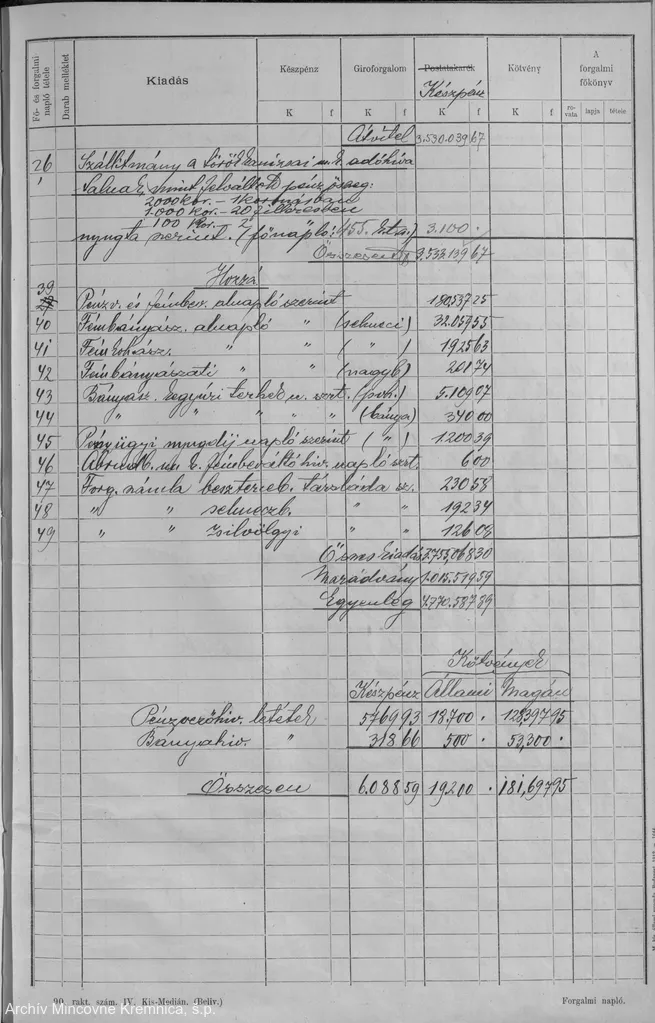 Fő- és forgalmi napló tétele
Darab melléklet
Kiadás
Készpénz
Giroforgalom
Postatakarék
Készpénz
Kötvény
A forgalmi főkönyv
K f K f K f K f rovata lapja tétele
Átvitel 3.530.039 67
26 Szállítmány a törökkanizsai m. k. adóhiva
talnak, mint felváltott pénzösszeg:
2000 kor. - 1 koronásban
1.000 kor. - 20 filléresben
100 kor. - 2 "
nyugta szerint. (főnapló: 155. k.t.a.) 3.100 .
Összesen 3.533.139 67
Hozzá
39
Pénzv. és fémbev. alnapló szerint 180537 25
40 Fémbányász. alnapló " (selmeci) 32.059 55
41 Fémkohász. " " ( " ) 1925 63
42 Fémbányászati " " (nagyb.) 201 74
43 Bányász. kegyúri terhek u. szrt. 5.109 07
44 " " " " " (bánya) 340 00
45 Pénzügyi nyugdíj napló szerint ( " ) 1200 39
46 m. k. fémbeváltó hiv. napló szrt. 6 00
47 Forg. számla beszterceb. sz. 230 58
48 " " selmeczb. " " 192 34
49 " " zsilvölgyi " " 126 08
Össz. kiadás 3.755,068 30
Maradvány 1.015.519 59
Egyenleg 4.770.587 89
Kötvények
Készpénz Állami Magán
Pénzverőhiv. letétek 5769 93 18.700 . 128,397 95
Bányahiv. " 318 66 500 . 53,300 .
Összesen 6.088 59 19200 . 181,697 95
90. rakt. szám. IV. Kis-Medián. (Beliv.)
Forgalmi napló.
Archív Mincovne Kremnica, š.p.